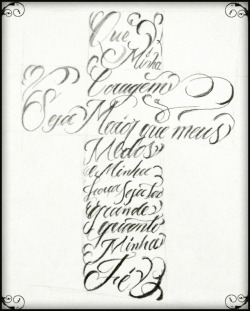 Que
Minha
Coragem
Seja Maior que meus
Medos
e Minha
Força Seja tão
grande
quanto
Minha
Fé